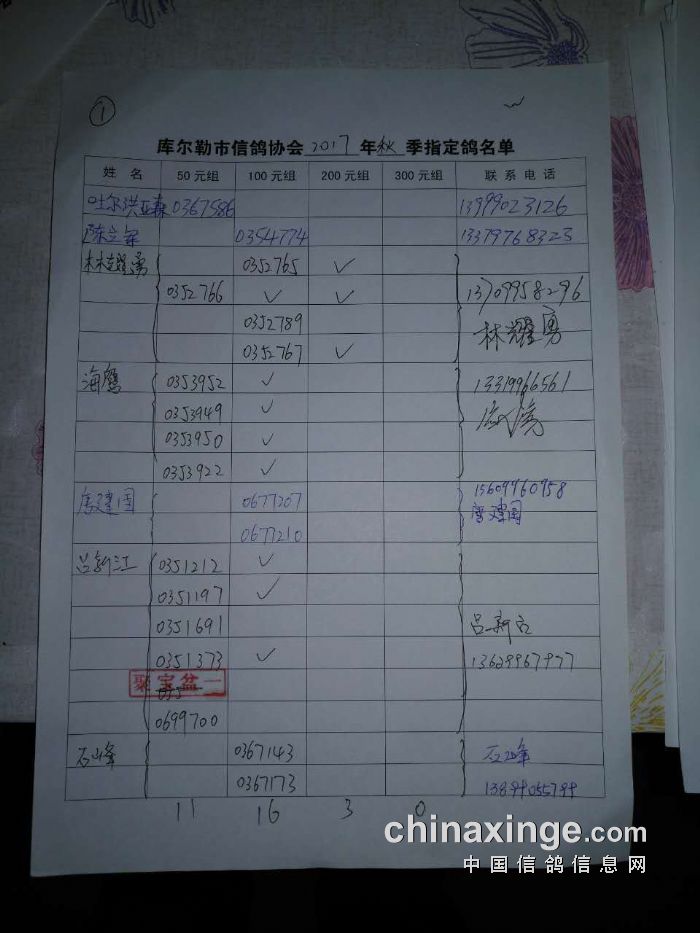 ①
库尔勒市信鸽协会 2017 年 秋 季指定鸽名单
姓 名 50元组 100元组 200元组 300元组 联系电话
吐尔洪亚森 0367586 13999023126
陈立军 0354774 13379768323
林耀勇 0352765 ✓
0352766 ✓ ✓ 13709958296
0352789 林耀勇
0352767 ✓
海鹰 0353952 ✓ 13319966561
0353949 ✓
0353950 ✓
0353922 ✓
唐建国 0677207 15609960958
0677210 唐建国
吕新江 0351212 ✓
0351197 ✓
0351691 吕新江
0351373 ✓ 13629967977
聚宝盆一
0699700
石山峰 0367143 石山峰
0367173
11 16 3 0
chinaxinge.com
中国信鸽信息网